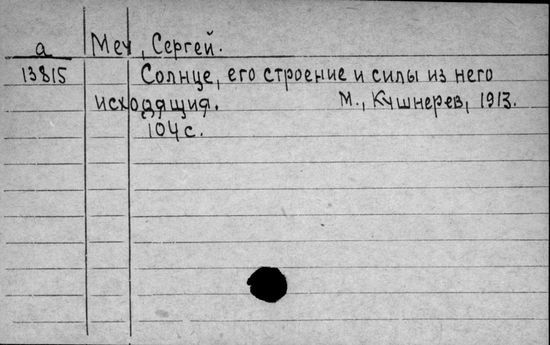 а Меч, Сергей.
13815 Солнце, его строение и силы из него
исходящия. М., Кушнерев, 1913.
104 с.